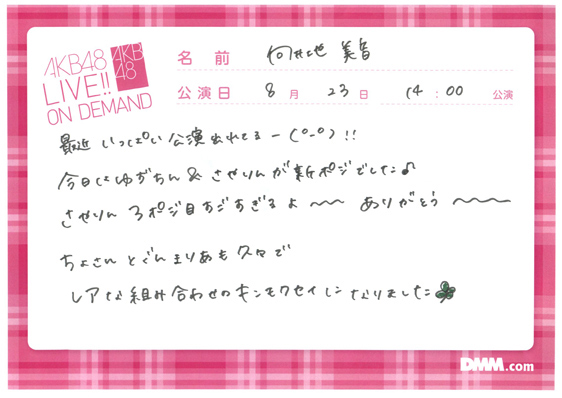 AKB48
LIVE!!
ON DEMAND
AKB
48
名前 向井地 美音
公演日 8月 23日 14:00 公演
最近 いっぱい 公演出れてるー(°-°)!!
今日はゆぢちん& さやりんが新ポジでした♪
さやりん 3ポジ目すごすぎるよ〜〜 ありがとう〜〜〜
ちょさんとぐんまりあも久々で
レアな組み合わせのキンモクセイになりました
DMM.com